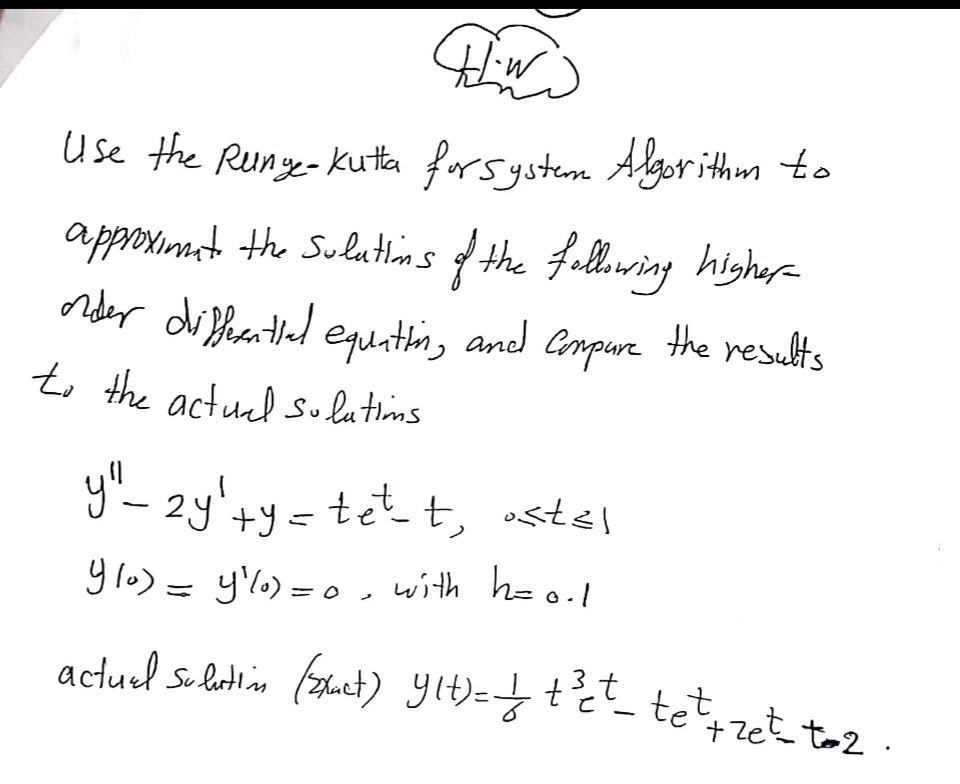 H.W
Use the Runge-Kutta for system Algorithm to
approximat the solutins of the following higher-
order differential equation, and Compare the results
to the actual solutins
y" - 2y' + y = te^t - t, 0≤t≤1
y(0) = y'(0) = 0, with h = 0.1
actual solutin (Exact) y(t) = 1/6 t^3 e^t - te^t + 2e^t - t - 2.